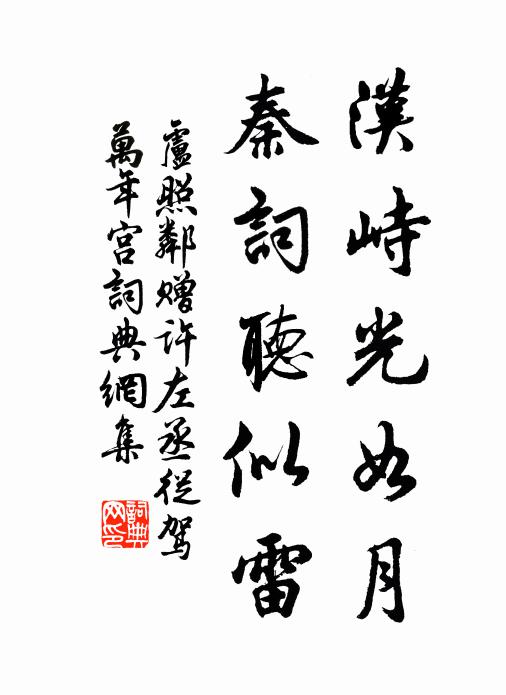 漢畤光如月
秦詞聽似雷
盧照鄰贈許左丞從駕
萬年宮詞典網集
詞典
网印